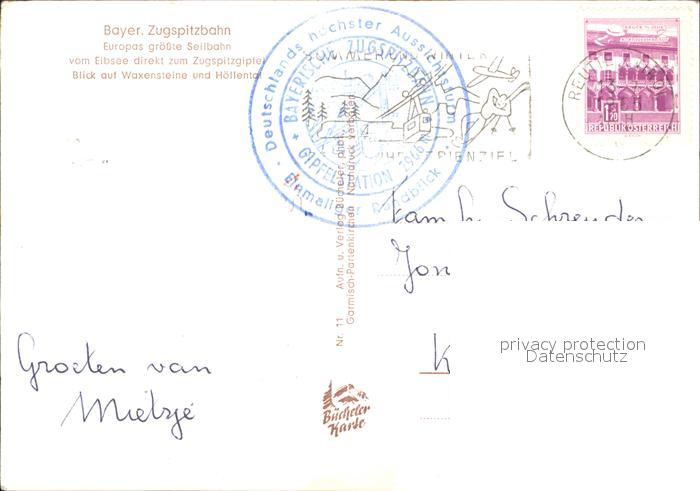 Bayer. Zugspitzbahn
Europas größte Seilbahn
vom Eibsee direkt zum Zugspitzgipfel
Blick auf Waxensteine und Höllental
· Deutschlands höchster Aussichtsturm ·
Einmaliger Rundblick
BAYERISCHE ZUGSPITZBAHN
GIPFELSTATION 2966 m
REUTTE
1.50
REPUBLIK ÖSTERREICH
FERIENZIEL
Nr. 11 Aufn. u. Verlag Bücheler, phot.
Garmisch-Partenkirchen Nachdruck verboten
Fam. h. Schreuder
Jon
K
privacy protection
Datenschutz
Groeten van
Mietzjé
Bücheler
Karte